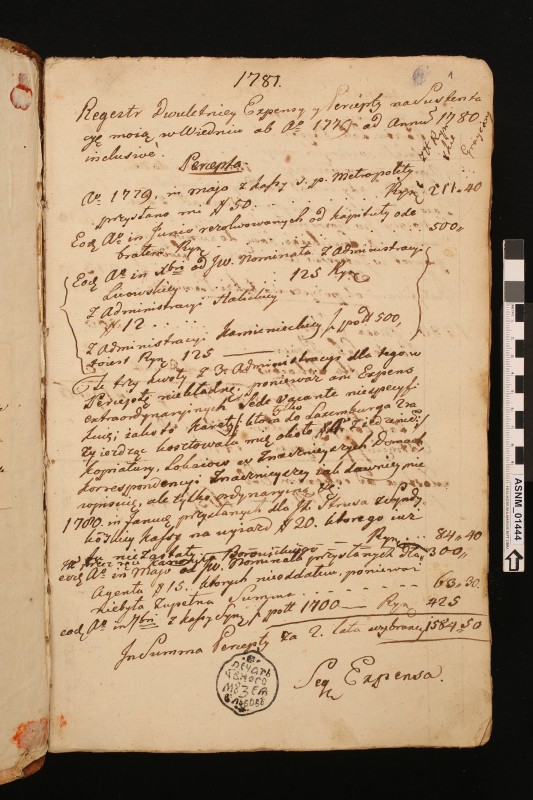 1781.
Regestr dwuletniey Expensy y Percepty na Sustenta
cyę moią w Wiedniu ab Ao 1779 ad Annum 1780
inclusivé.
zł Ryn
Percepta.
Ao 1779, in majo z kassy s. p. Metropolity
przysłano mi # 50. . . . Ryn 211 „ 40
Eod Ao in Junio rezolwowanych od kapituły ode
brałem Ryn . . . . 500 „
Eod Ao in Xbri od Jw. Nominata z Administracyi
Lwowskiey . . . . 125 Ryn
z Administracyi Halickiey
# 12 . . . .
z Administracyi Kamienieckiey f. pol 500,
to iest Ryn 125
Te trzy kwoty z 3. Administracyi dla tego w
Perceptę niekładnę, ponieważ ani Expens
extraordynaryinych Sede Vacante niespecyfi
kuię, iako to Karety, ktora do Laxemburga
zieżdżaiąc kosztowała mię około
Kopiatury, Lokaiow w Znacznieyszych Domach
korrespondencyi Znacznieyszey iak dawniey nie
wnoszę, ale tylko ordynaryiną
1780 in Januar. przysłanych dla Jp. Strusa z wspol
kassy na wyiazd # 20. ktorego
tu nie zastały . . . Ryn 84 „ 40
Borouskiego 300 „
eod Ao in Majo od Jw. Nominata przysłanych dla
Agenta # 15. ktorych nieoddałem, ponieważ
niebyła zupełna Summa . . . . 63 „ 30
eod Ao in 7bri z kassy f. pol 1700 — Ryn 425
In Summa Percepty za 2. lata wybraney 1584 „ 50
Seq Expensa.
ПЕЧАТЬ
МꙊЗЕА
ASNM_01444